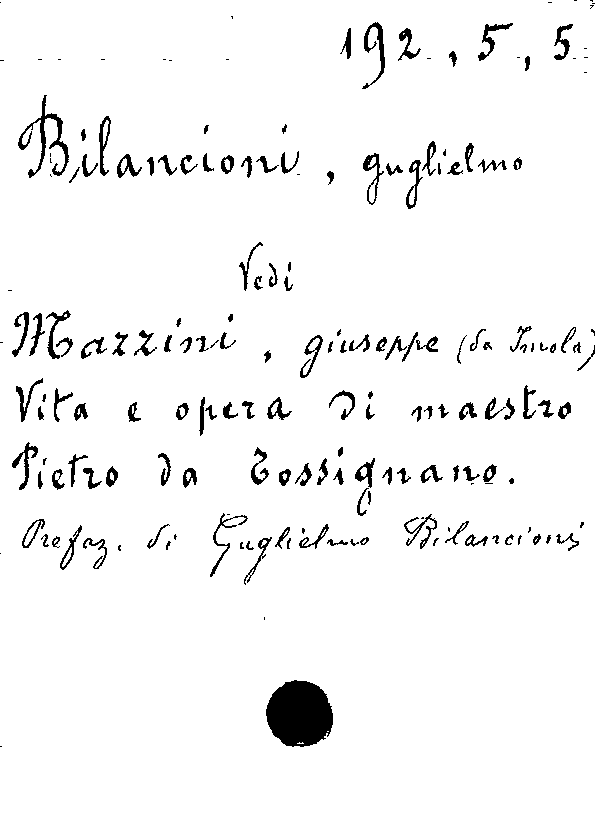 192, 5, 5
Bilancioni, guglielmo
Vedi
Mazzini, giuseppe (da Imola)
Vita e opera di maestro
Pietro da Tossignano.
Prefaz. di Guglielmo Bilancioni